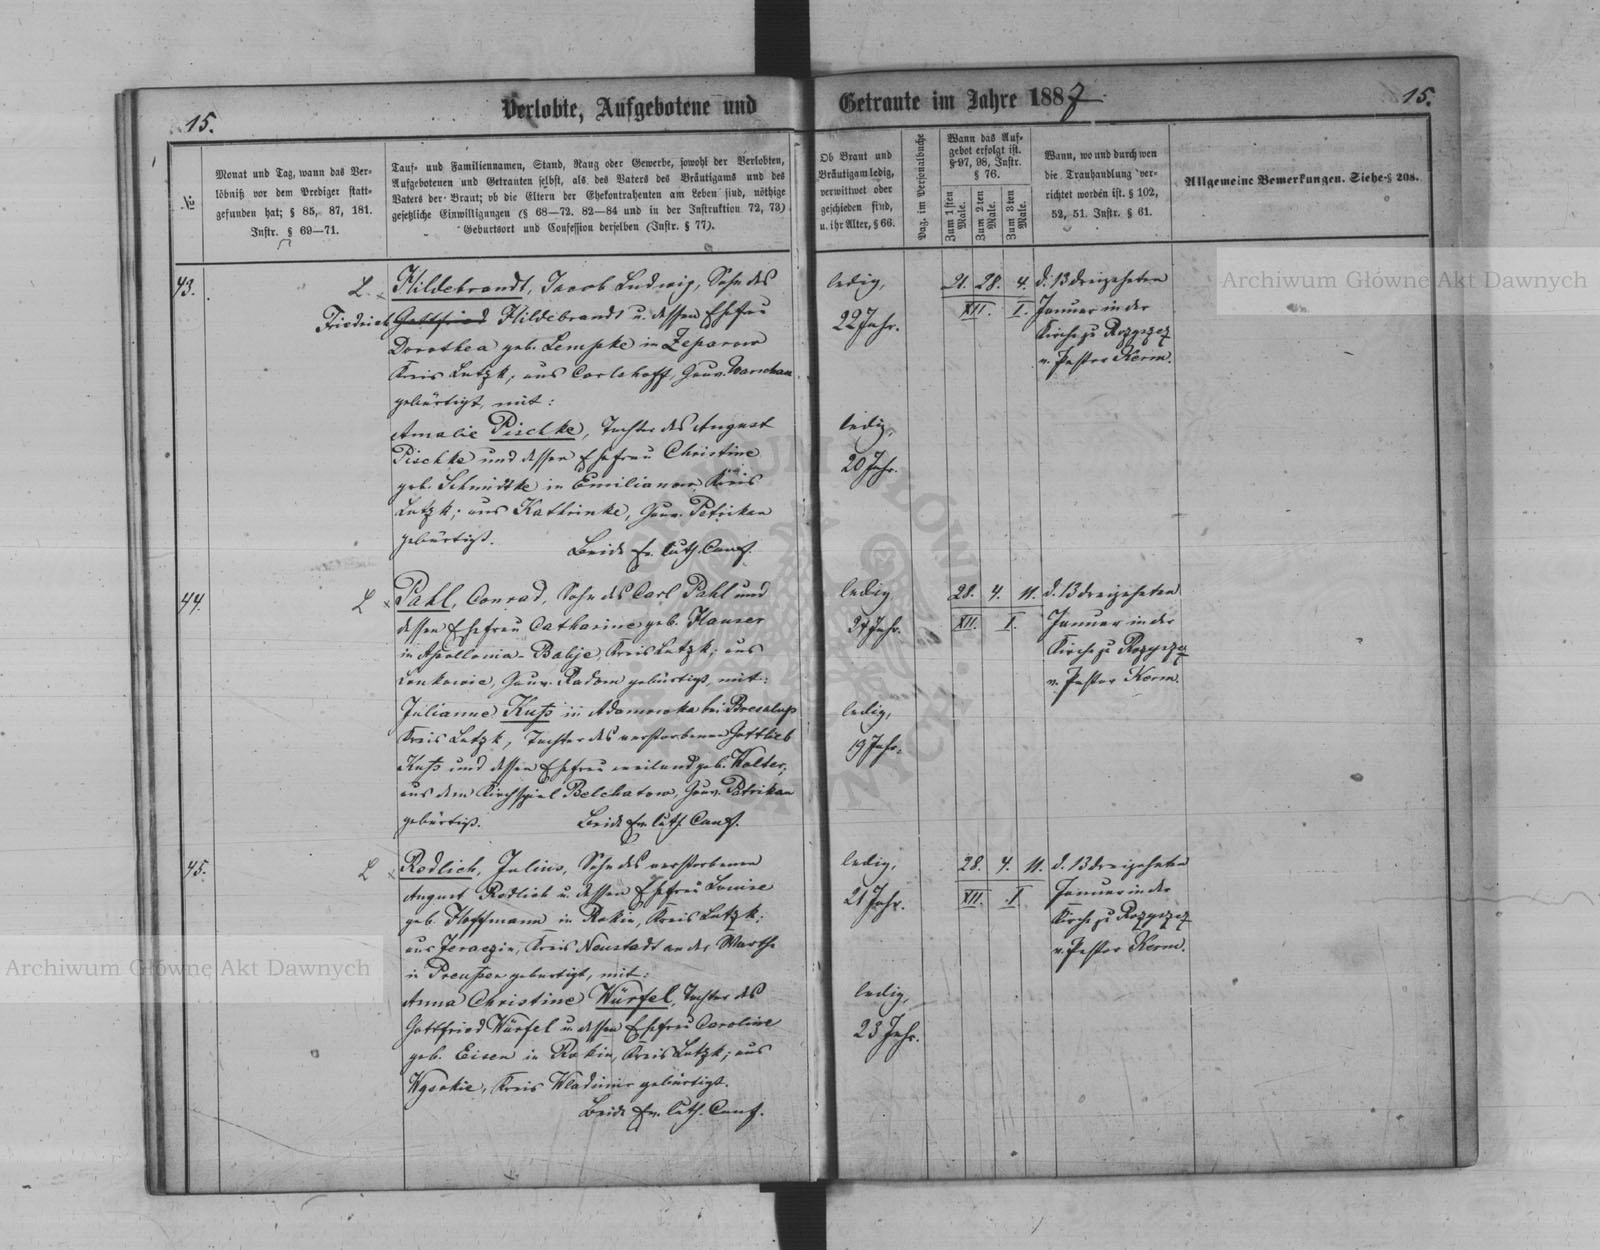 15.
Verlobte, Aufgebotene und
Getraute im Jahre 1887
15.
№
Monat und Tag, wann das Ver-
löbniß vor dem Prediger statt-
gefunden hat; § 85, 87, 181.
Instr. § 69—71.
Tauf- und Familiennamen, Stand, Rang oder Gewerbe, sowohl der Verlobten,
Aufgebotenen und Getrauten selbst, als des Vaters des Bräutigams und des
Vaters der Braut; ob die Eltern der Ehekontrahenten am Leben sind, nöthige
gesetzliche Einwilligungen (§ 68—72. 82—84 und in der Instruktion 72, 73)
Geburtsort und Confession derselben (Instr. § 77).
Ob Braut und
Bräutigam ledig,
verwittwet oder
geschieden sind,
u. ihr Alter, § 66.
Pag. im Personalbuche
Wann das Auf-
gebot erfolgt ist.
§ 97, 98, Instr.
§ 76.
Zum 1sten Male.
Zum 2ten Male.
Zum 3ten Male.
Wann, wo und durch wen
die Trauhandlung ver-
richtet worden ist. § 102,
52, 51. Instr. § 61.
Allgemeine Bemerkungen. Siehe § 208.
43.
L. × Hildebrandt, Jacob Ludwig, Sohn des
Friedrich Gottfried Hildebrandt u. dessen Ehefrau
Dorothea geb. Lempke in Zeparow
Kreis Lutzk; aus Carlshoff, Gouv. Warschau
gebürtigt, mit:
Amalie Pischke, Tochter des August
Pischke und dessen Ehefrau Christine
geb. Schmidtke in Emilianow Kreis
Lutzk; aus Kathrinke, Gouv. Petrikau
gebürtigt.
Beide Ev. luth. Conf.
ledig,
22 Jahr.
ledig,
20 Jahr.
21. 28. 4.
XII. I.
d. 13 dreizehnten
Januar in der
Kirche zu Rozyszcz
v. Pastor Kerm.
44.
L × Pahl, Conrad, Sohn des Carl Pahl und
dessen Ehefrau Catharine geb. Hauser
in Apollonia-Balije, Kreis Lutzk; aus
Lonkowie, Gouv. Radom gebürtigt, mit:
Julianne Kuß in Adamowka bei
Kreis Lutzk, Tochter des verstorbenen Gottlieb
Kuß und dessen Ehefrau weiland geb. Wolter,
aus dem Kirchspiel Belchatow, Gouv. Petrikau
gebürtigt.
Beide Ev. luth. Conf.
ledig
Jahr.
ledig,
19 Jahr.
28. 4. 11.
XII. I.
d. 13 dreizehnten
Januar in der
Kirche zu Rozyszcz
v. Pastor Kerm.
45.
L × Redlich, Julius, Sohn des verstorbenen
August Redlich u. dessen Ehefrau Louise
geb. Hoffmann in Rokin, Kreis Lutzk;
aus Jeraczin, Kreis Neustadt an der Warthe
in Preußen gebürtigt, mit:
Anna Christine Würfel, Tochter des
Gottfried Würfel u. dessen Ehefrau Caroline
geb. Eisen in Rokin, Kreis Lutzk; aus
Wysokie, Kreis Wladimir gebürtigt.
Beide Ev. luth. Conf.
ledig,
21 Jahr.
ledig,
23 Jahr.
28. 4. 11.
XII. I.
d. 13 dreizehnten
Januar in der
Kirche zu Rozyszcz
v. Pastor Kerm.
Archiwum Główne Akt Dawnych
Archiwum Główne Akt Dawnych